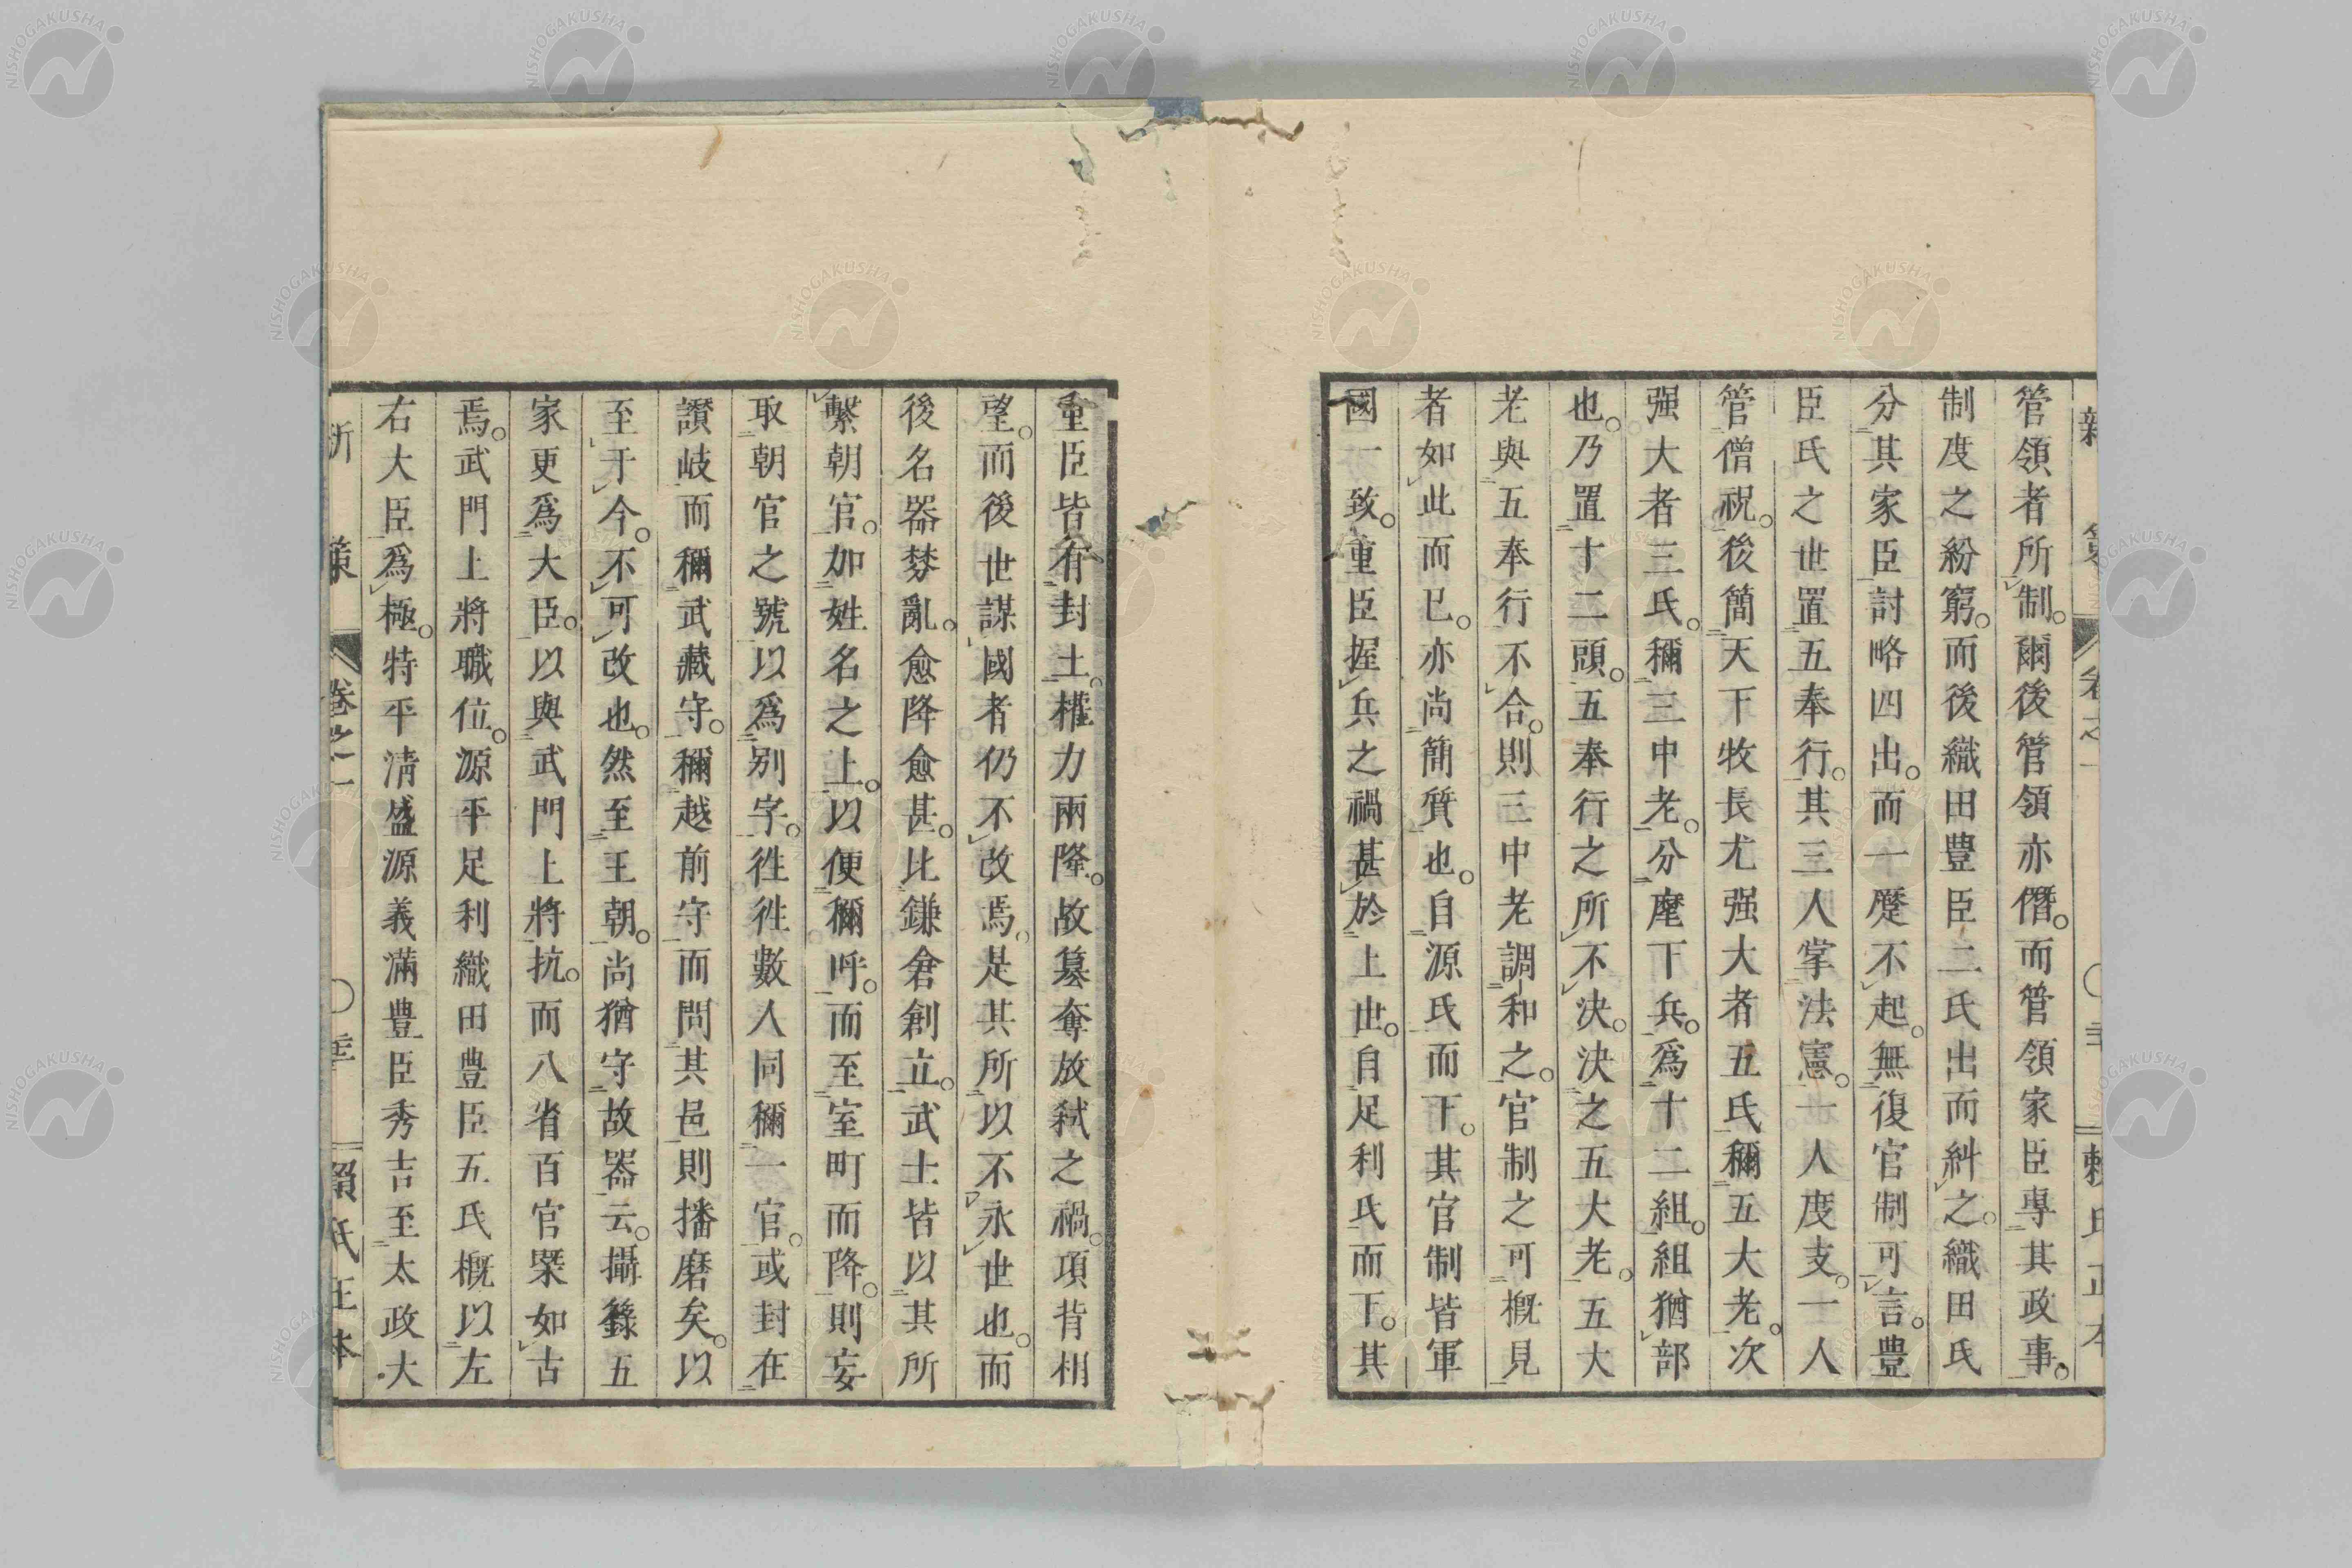 管領者所制。爾後管領亦僭。而管領家臣專其政事。
制度之紛窮。而後織田豊臣二氏出而糾之。織田氏
分其家臣討略四出。而一蹷不起。無復官制可言。豊
臣氏之世置五奉行。其三人掌法憲。一人度支。一人
管僧祝。後簡天下牧長尤强大者五氏稱五大老。次
强大者三氏。稱三中老。分麾下兵。爲十二組。組猶部
也。乃置十二頭。五奉行之所不決。決之五大老。五大
老與五奉行不合。則三中老調和之。官制之可概見
者如此而已。亦尚簡質也。自源氏而下。其官制皆軍
國一致。重臣握兵之禍甚於上世。自足利氏而下。其
重臣皆有封土。權力兩隆。故簒奪放弑之禍。項背相
望。而後世謀國者仍不改焉。是其所以不永世也。而
後名器棼亂。愈降愈甚。比鎌倉創立。武士皆以其所
繫朝官。加姓名之上。以便稱呼。而至室町而降。則妄
取朝官之號以爲別字。徃徃數人同稱一官。或封在
讃岐而稱武藏守。稱越前守而問其邑則播磨矣。以
至于今。不可改也。然至王朝。尚猶守故器云。攝籙五
家更爲大臣。以與武門上將抗。而八省百官槩如古
焉。武門上將職位。源平足利織田豊臣五氏概以左
右大臣爲極。特平淸盛源義滿豊臣秀吉至太政大
新策 卷之一
賴氏正本
NISHOGAKUSHA